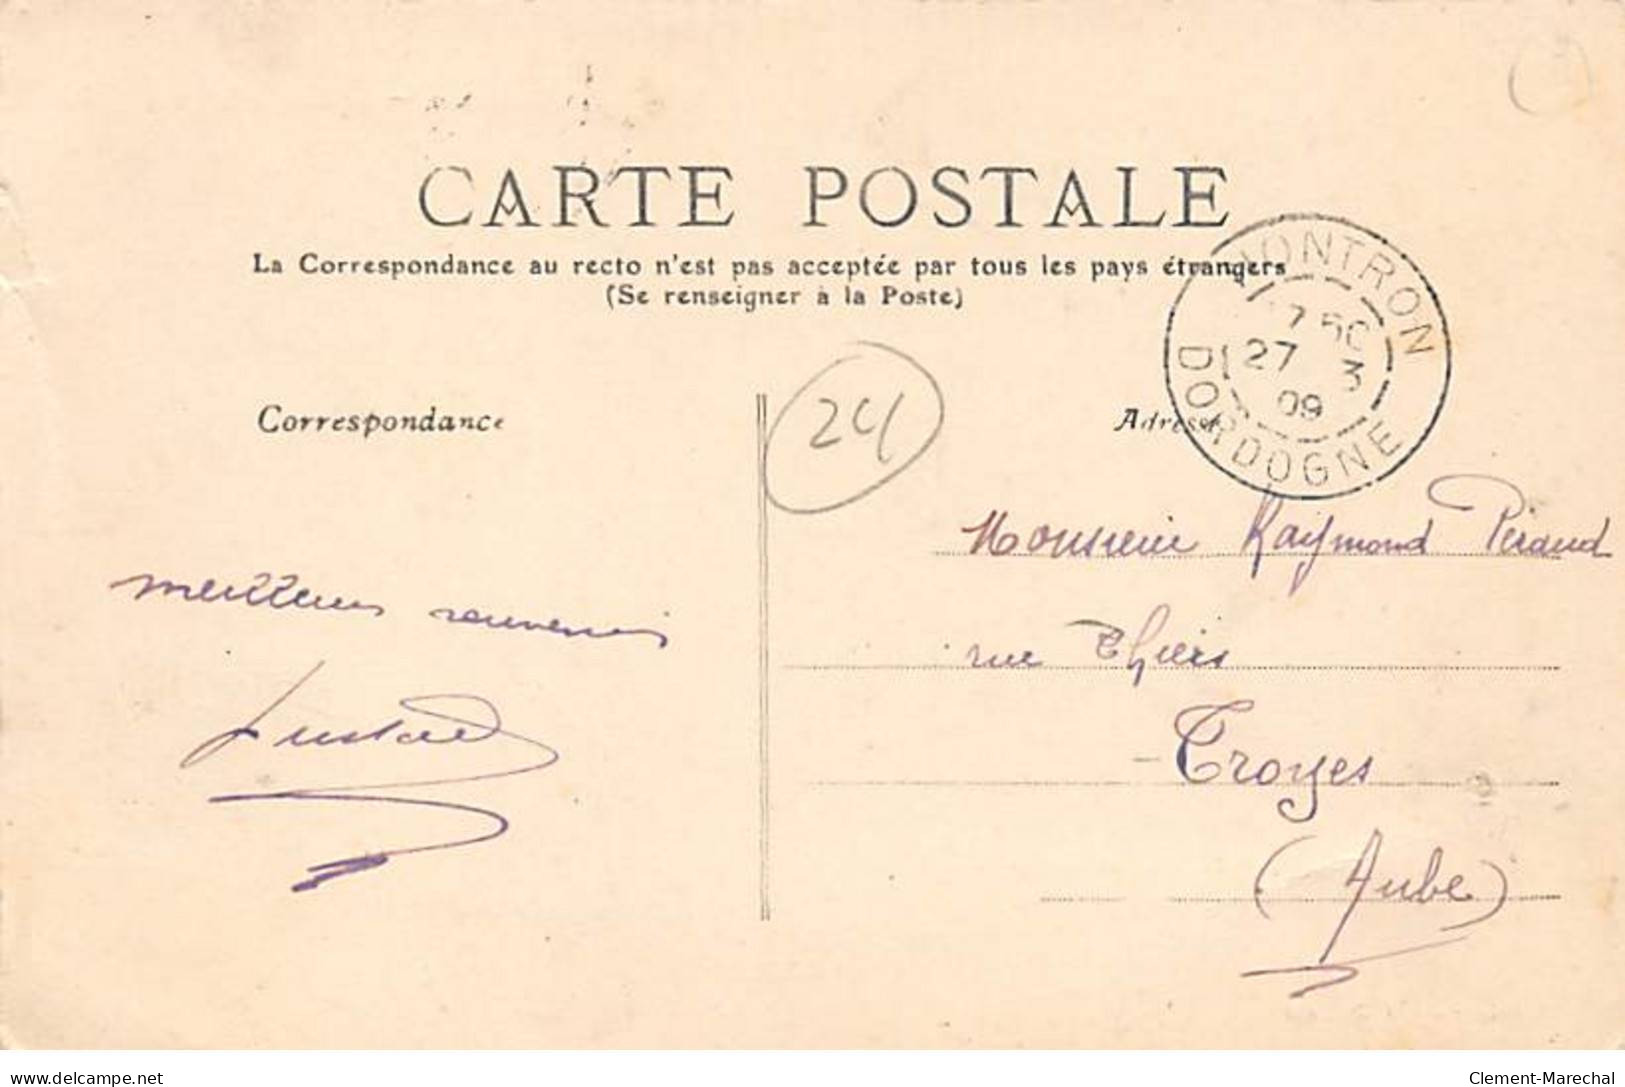 CARTE POSTALE
La Correspondance au recto n'est pas acceptée par tous les pays étrangers
(Se renseigner à la Poste)
NONTRON
7 50
27 3
09
DORDOGNE
Correspondance
24
Adresse
Monsieur Raymond Péraud
meilleurs souvenirs
rue Thiers
Troyes
(Aube)
delcampe.net
Clement-Marechal